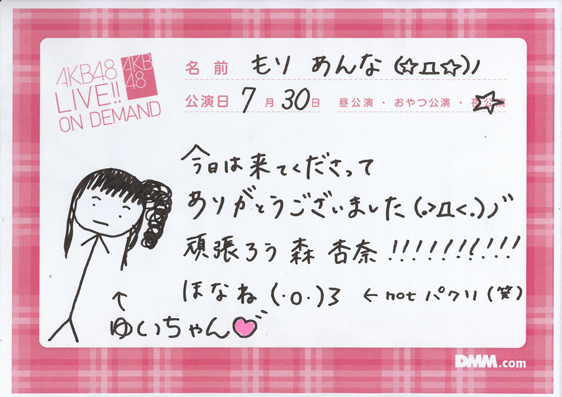 AKB48
LIVE!!
ON DEMAND
AKB
48
名前 もり あんな (☆Д☆)ノ
公演日 7月30日 昼公演・おやつ公演・夜公演
今日は来てくださって
ありがとうございました(｡>Д<｡)ﾉﾞ
頑張ろう 森 杏奈 !!!!!!!!!!
ほなね (・o・)3 ←not パクリ(笑)
↑
ゆいちゃん♡
DMM.com